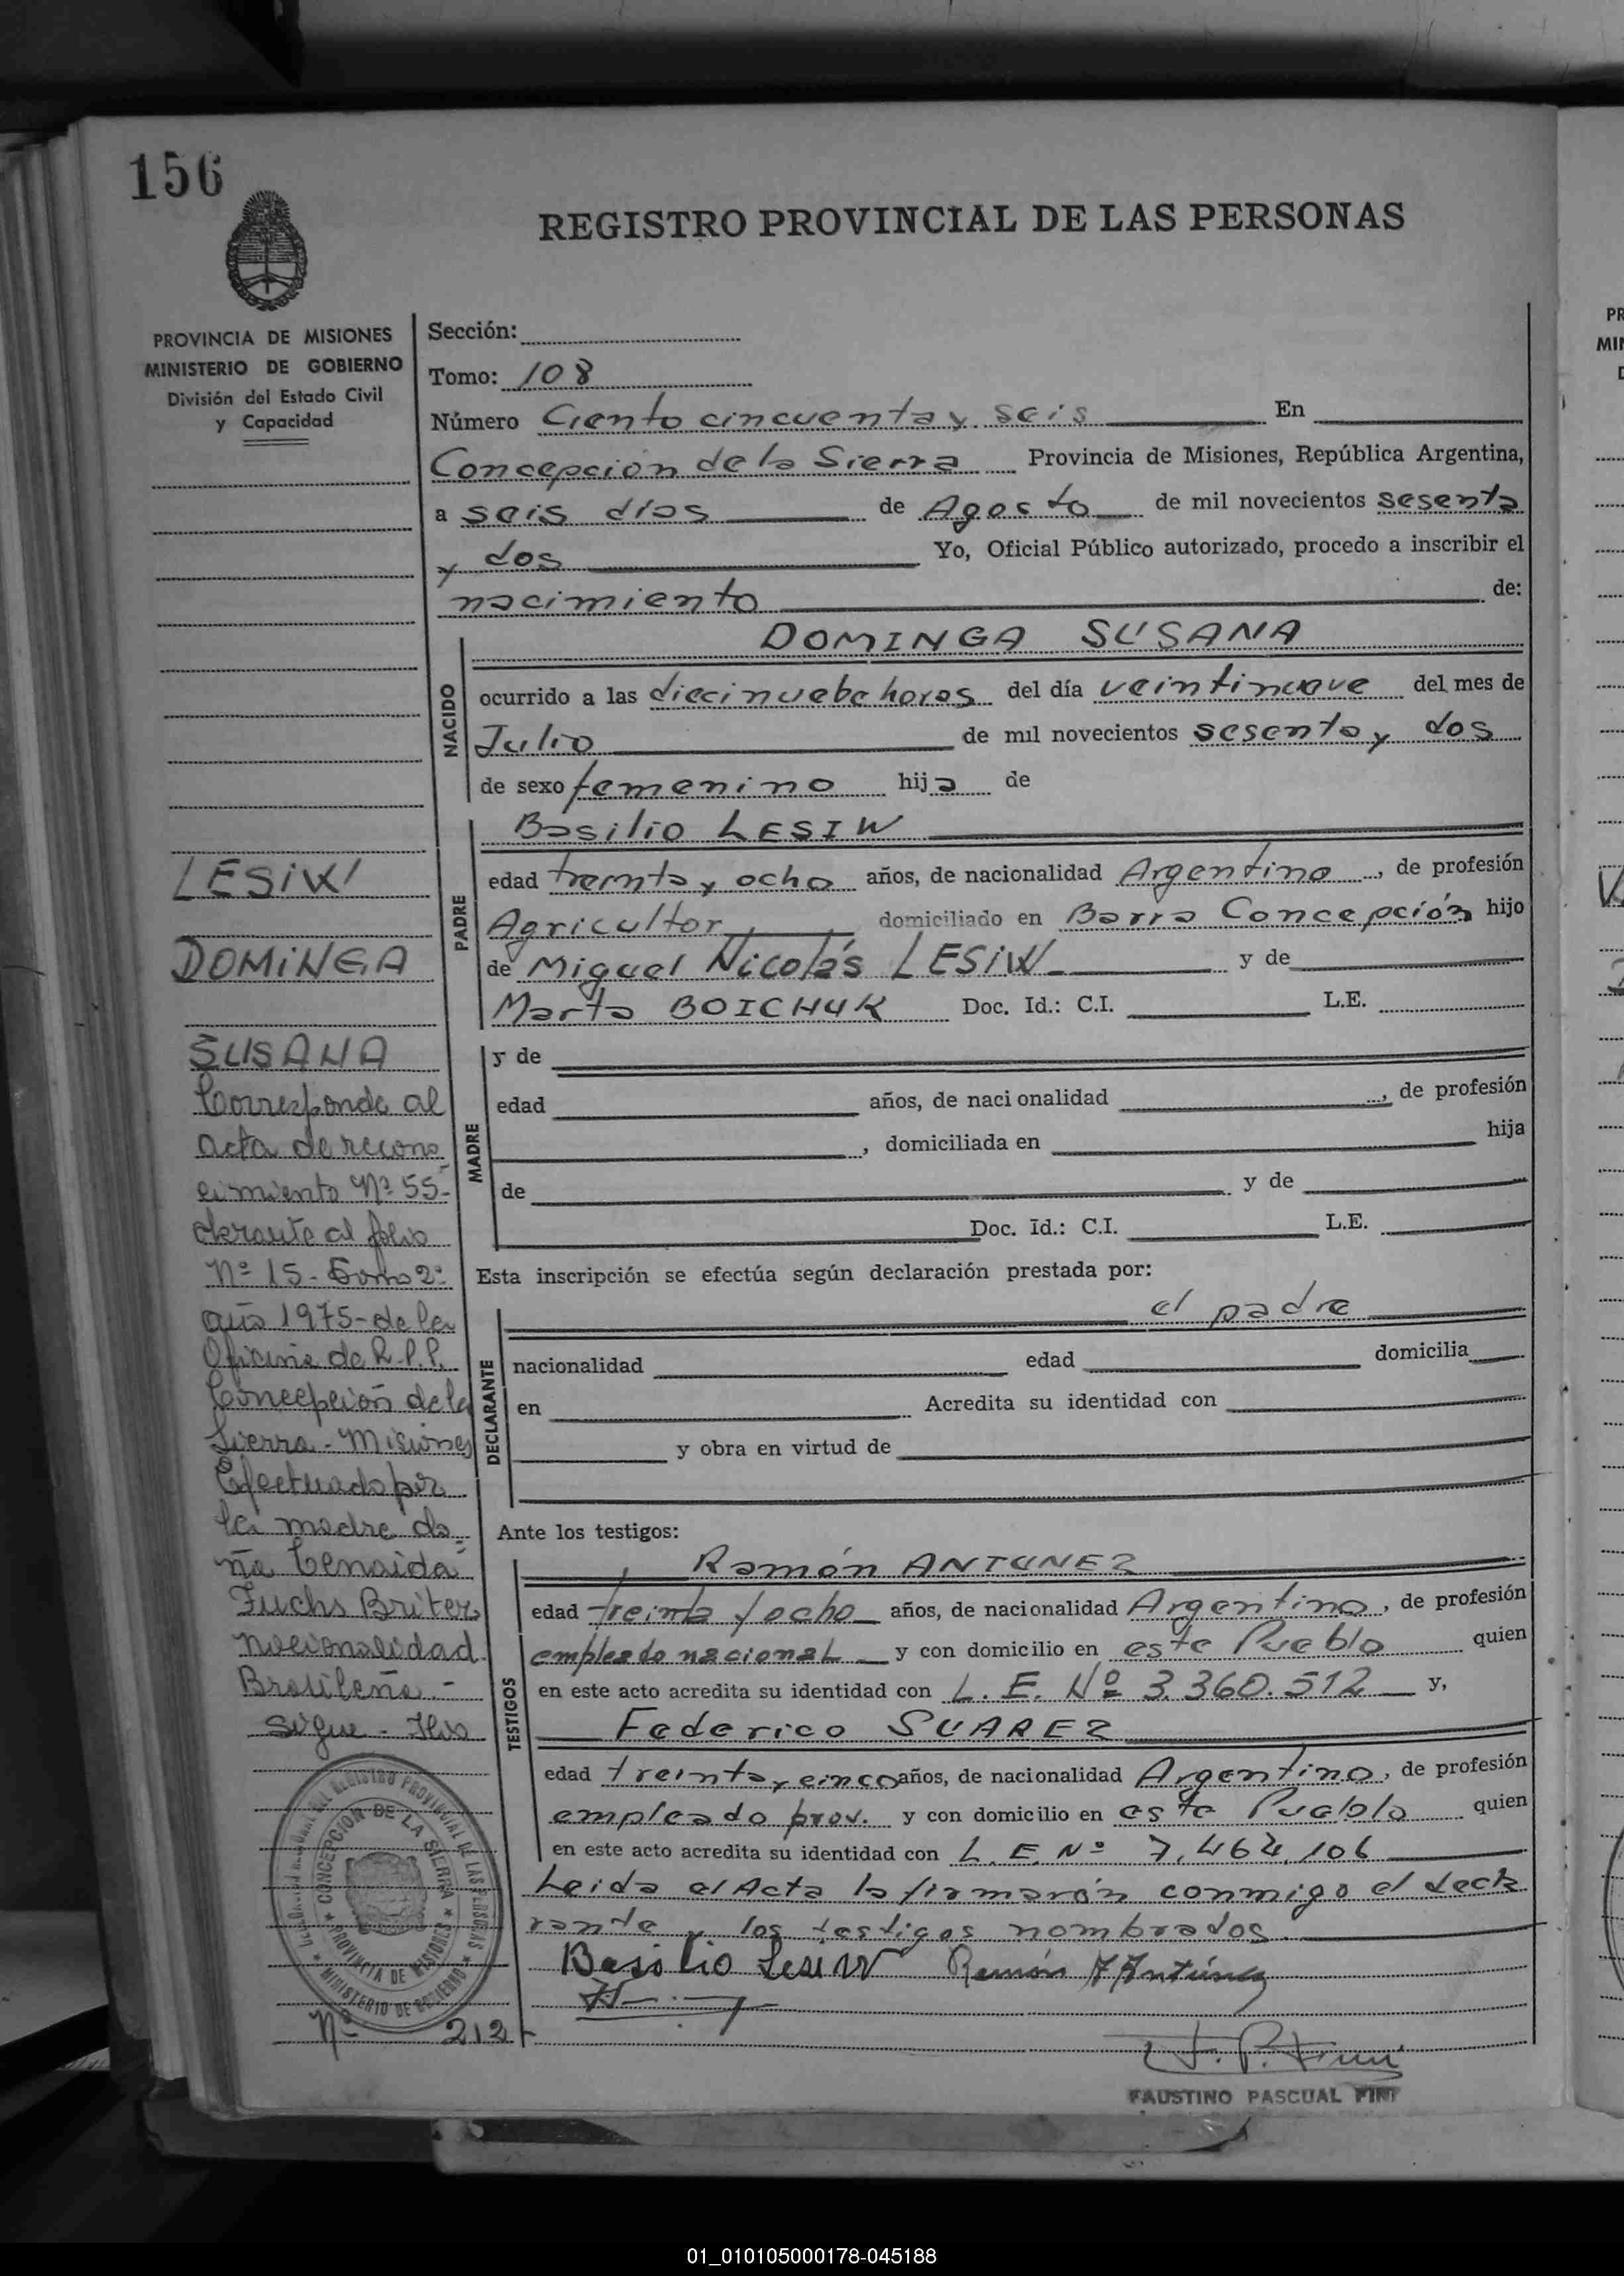 156
REGISTRO PROVINCIAL DE LAS PERSONAS
PROVINCIA DE MISIONES
MINISTERIO DE GOBIERNO
División del Estado Civil
y Capacidad
Sección:
Tomo: 108
Número Ciento cincuenta y seis En
Concepción de la Sierra Provincia de Misiones, República Argentina,
a seis días de Agosto de mil novecientos sesenta
y dos Yo, Oficial Público autorizado, procedo a inscribir el
nacimiento de:
NACIDO
DOMINGA SUSANA
ocurrido a las diecinuebe horas del día veintinueve del mes de
Julio de mil novecientos sesenta y dos
de sexo femenino hija de
PADRE
Basilio LESIW
edad treinta y ocho años, de nacionalidad Argentino, de profesión
Agricultor domiciliado en Barra Concepción hijo
de Miguel Nicolás LESIW y de
Marta BOICHUK Doc. Id.: C.I. L.E.
MADRE
y de
edad años, de nacionalidad , de profesión
, domiciliada en hija
de y de
Doc. Id.: C.I. L.E.
Esta inscripción se efectúa según declaración prestada por:
DECLARANTE
el padre
nacionalidad edad domicilia
en Acredita su identidad con
y obra en virtud de
Ante los testigos:
TESTIGOS
Ramón ANTUNEZ
edad treinta y ocho años, de nacionalidad Argentino, de profesión
empleado nacional y con domicilio en este Pueblo quien
en este acto acredita su identidad con L. E. Nº 3.360.512 y,
Federico SUAREZ
edad treinta y cinco años, de nacionalidad Argentino, de profesión
empleado prov. y con domicilio en este Pueblo quien
en este acto acredita su identidad con L. E. Nº 7.464.106
Leida el Acta la firmarán conmigo el decla
rante y los testigos nombrados.
Basilio Lesiw Ramón A Antúnez
F. P. Fini
FAUSTINO PASCUAL FINI
LESIW
DOMINGA
SUSANA
Corresponde al
acta de recono
cimiento Nº 55-
obrante al folio
Nº 15- Tomo 2º
año 1975- de la
Oficina de R.P.P.
Concepción de la
Sierra - Misiones
Efectuado por
la madre do-
ña Cenaida
Fuchs Briter
nacionalidad
Brasileña.-
Sigue -
REGISTRO PROVINCIAL DE LAS PERSONAS
CONCEPCION DE LA SIERRA
PROVINCIA DE MISIONES
MINISTERIO DE GOBIERNO
Nº 212
01_010105000178-045188